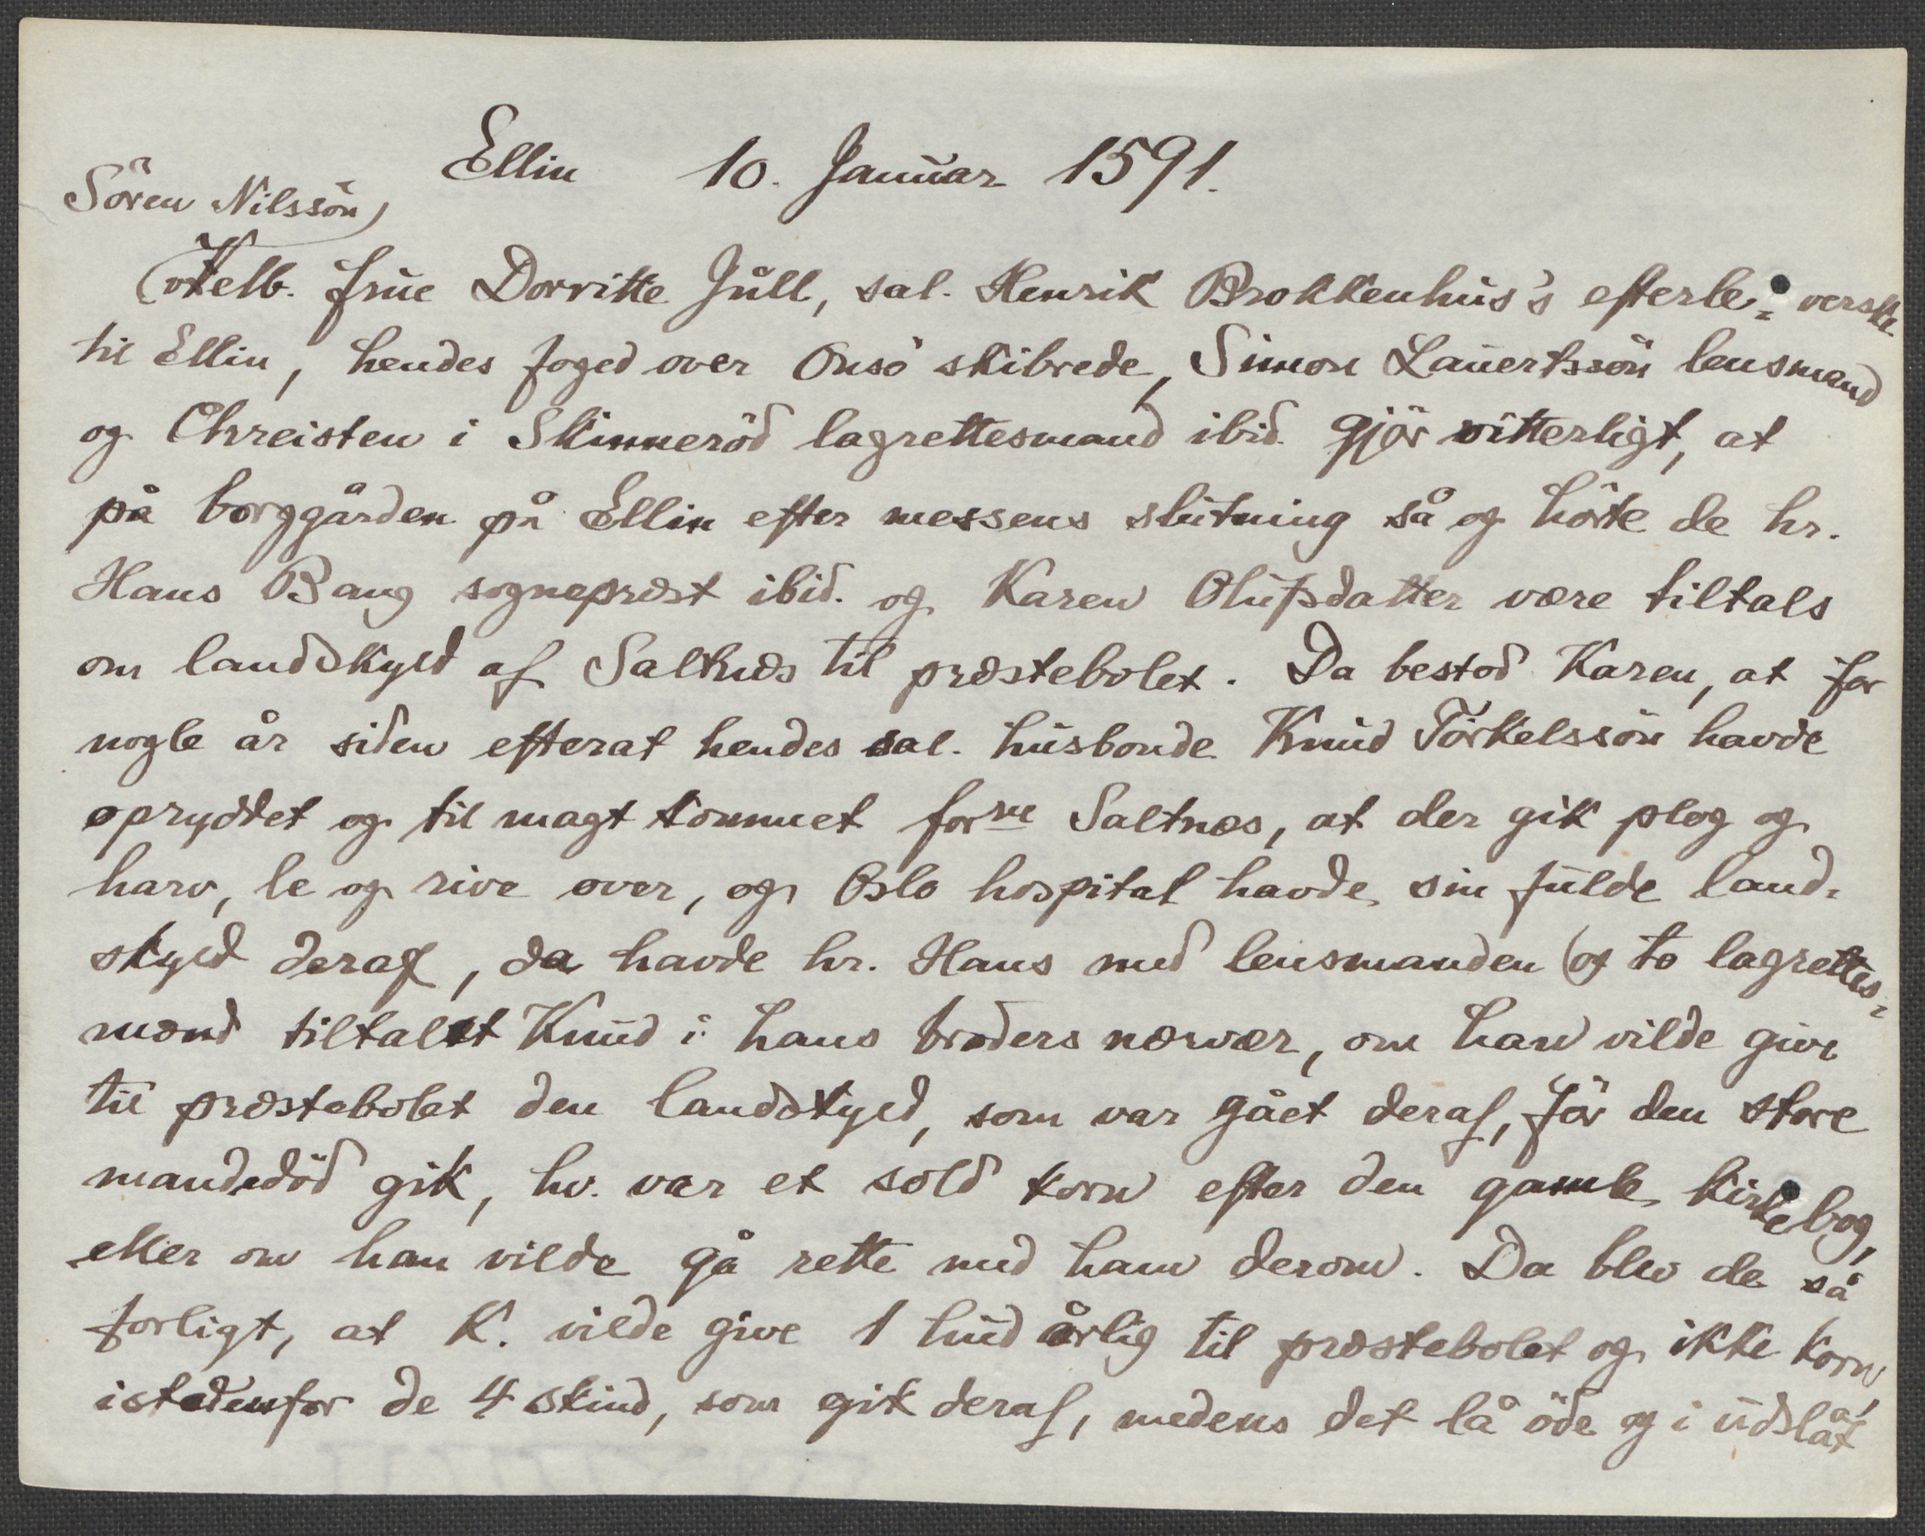 Ellin 10. Januar 1591.
Sören Nilssön,
Velb. frue Dorritte Jull, sal. Henrik Brokkenhus's efterle=verske
til Ellin, hendes foged over Onsö skibrede, Simon Lauertssön lensmand
og Chreisten i Skinneröd lagrettesmand ibid. gjör vitterligt, at
på borggården på Ellin efter messens slutning så og hörte de hr.
Hans Bang sogneprest ibid. og Karen Olufsdatter være tiltals
om landskyld af Saltnæs til præstebolet. Da bestod Karen, at for
nogle år siden efterat hendes sal. husbonde Knud Törkelssön havde
opryddet og til magt kommet forne Saltnæs, at der gik plog og
harv, le og rive over, og Oslo hospital havde sin fulde land-
skyld deraf, da havde hr. Hans med lensmanden (og to lagrettes=
mænd tiltalt Knud i hans broders nærvær, om han vilde give
til præstebolet den landskyld, som var gået deraf, för den store
mandedöd gik, hv. var et sold korn efter den gamle kirkebog,
eller om han vilde gå rette med ham derom. Da blev de så
forligt, at K. vilde give 1 hud årlig til præstebolet og ikke korn,
istedenfor de 4 skind, som gik deraf, medens det lå öde og i udslåt